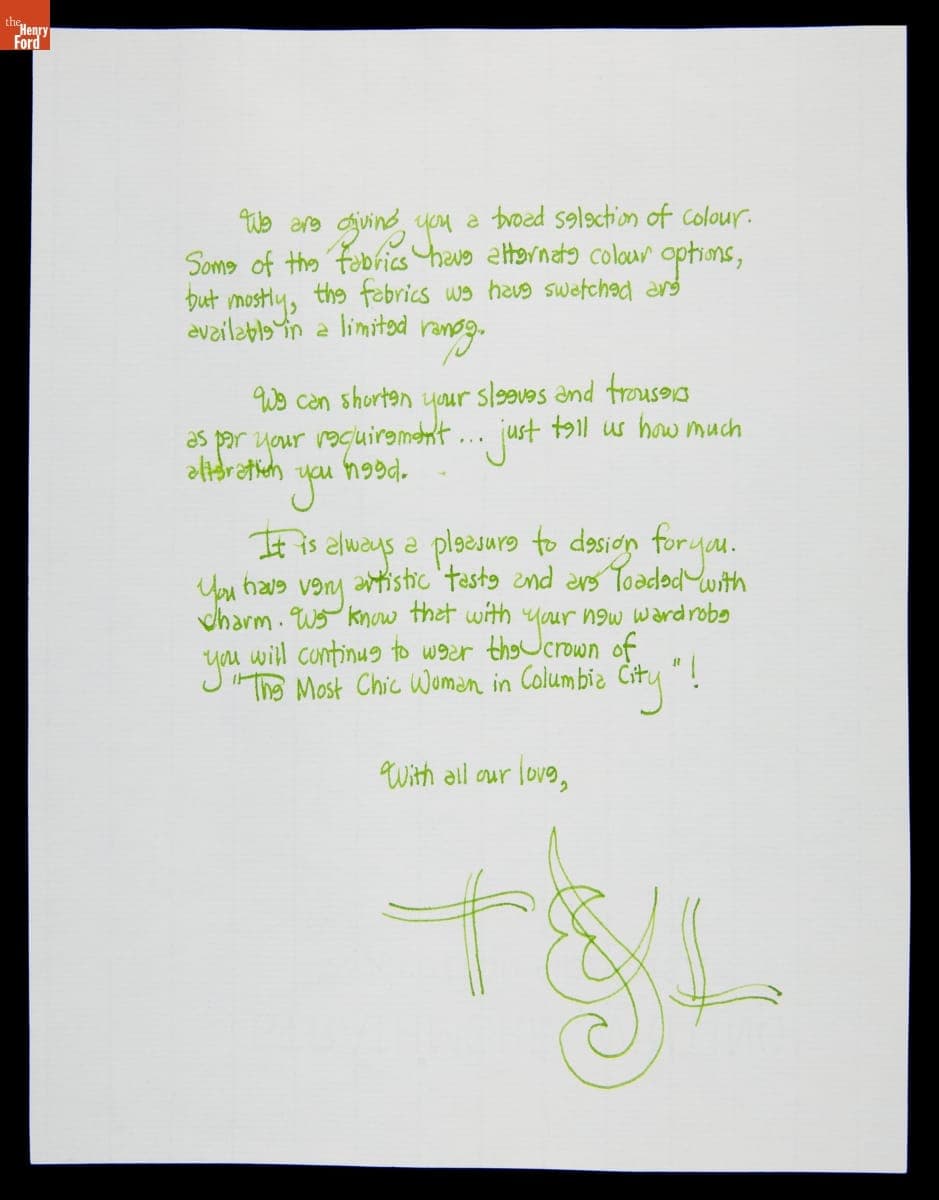 the
Henry
Ford
We are giving you a broad selection of colour.
Some of the fabrics have alternate colour options,
but mostly, the fabrics we have swatched are
available in a limited range.
We can shorten your sleeves and trousers
as per your requirement... just tell us how much
alteration you need.
It is always a pleasure to design for you.
You have very artistic taste and are loaded with
charm. We know that with your new wardrobe
you will continue to wear the crown of
"The Most Chic Woman in Columbia City"!
With all our love,
T & L